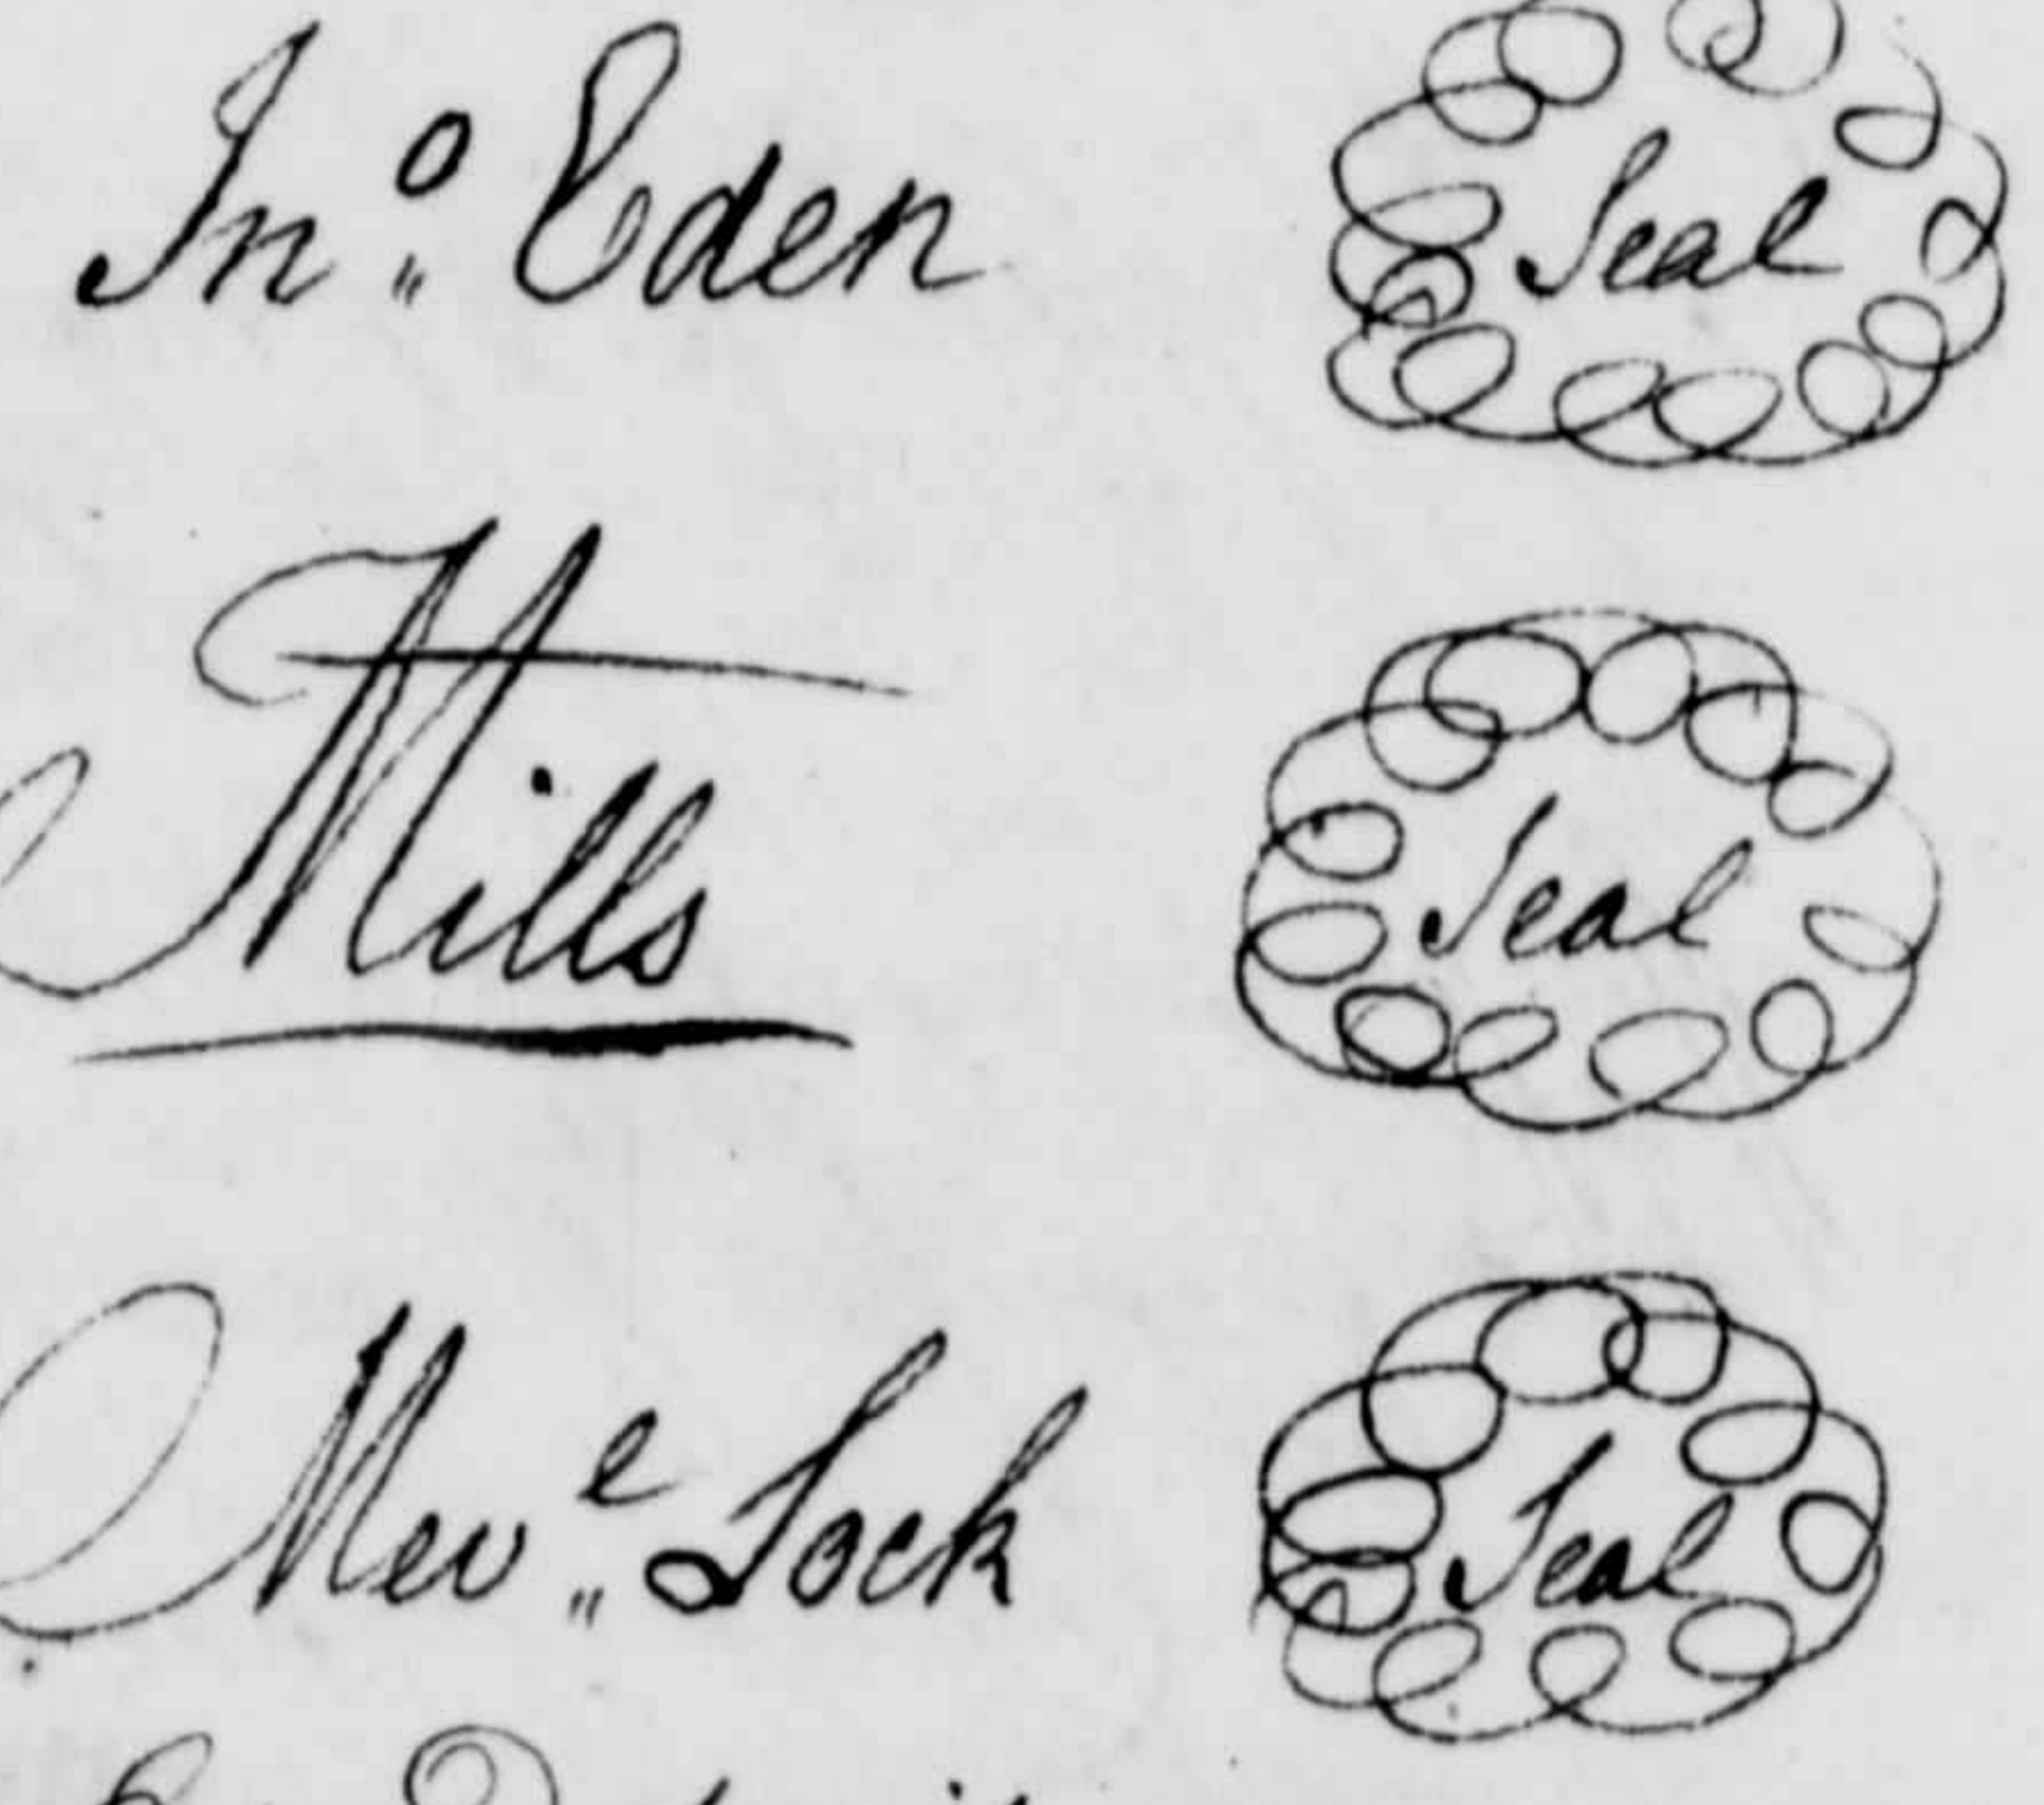 Jn.º Eden Seal
Mills Seal
Mev.e Lock Seal